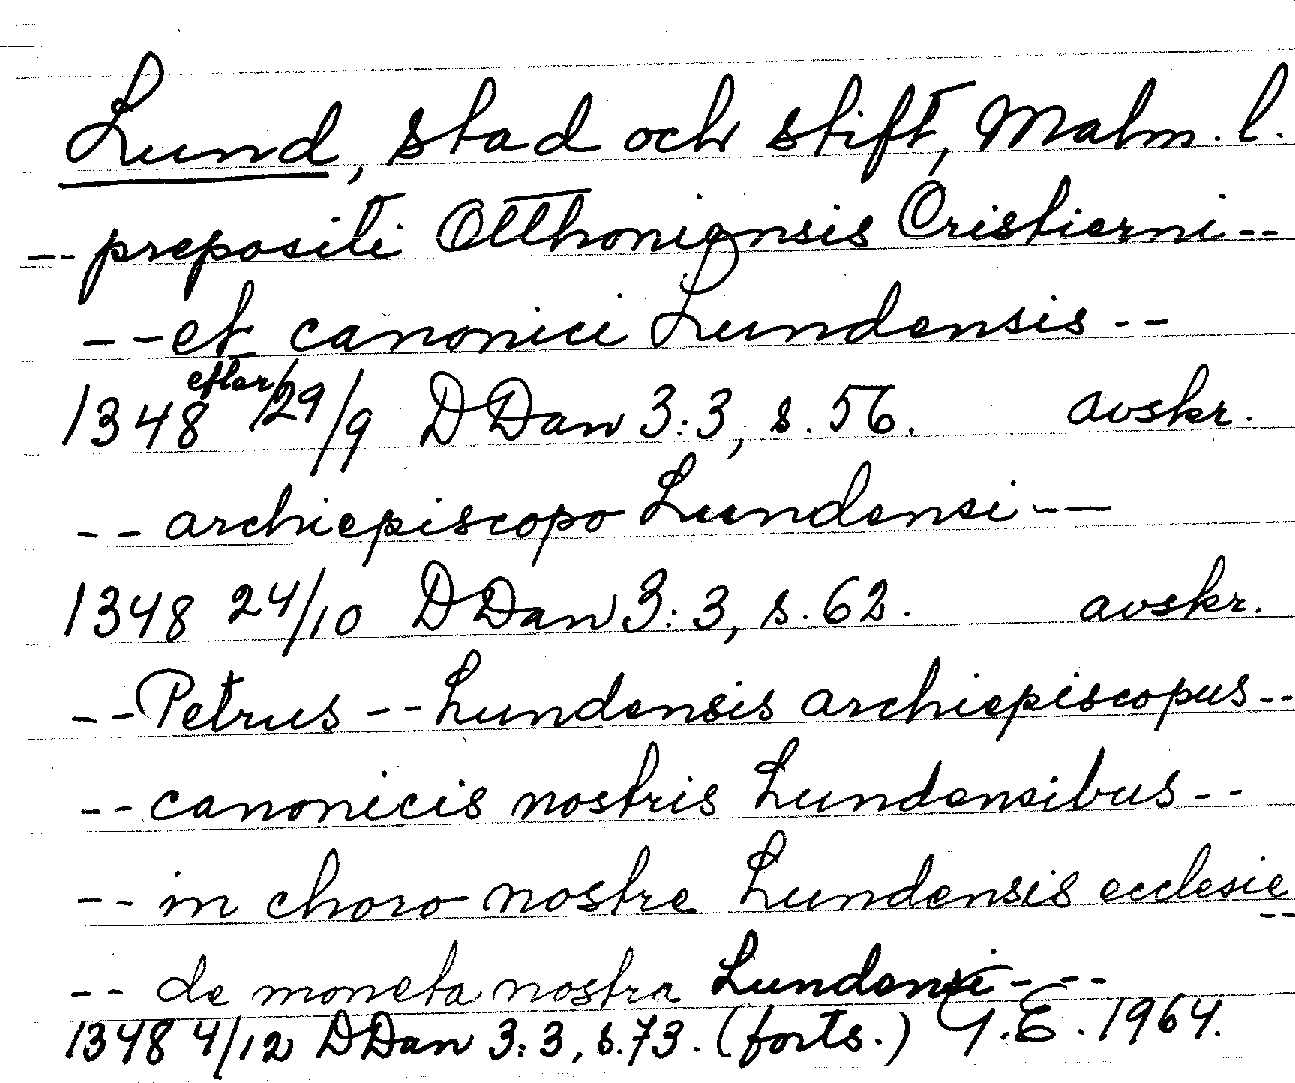 Lund, stad och stift, Malm. l.
-- prepositi Otthoniensis Cristierni --
-- et canonici Lundensis --
1348 efter 29/9 DDan 3:3, s. 56. avskr.
-- archiepiscopo Lundensi --
1348 24/10 DDan 3:3, s. 62. avskr.
-- Petrus -- Lundensis archiepiscopus --
-- canonicis nostris Lundensibus --
-- in choro nostre Lundensis ecclesie --
-- de moneta nostra Lundensi --
1348 4/12 DDan 3:3, s. 73. (forts.) G.E. 1964.